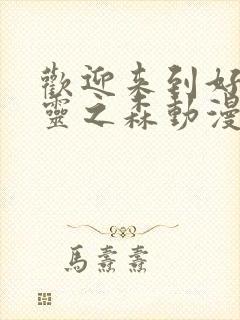 歡迎来到好
靈之森動漫
馬驫驫